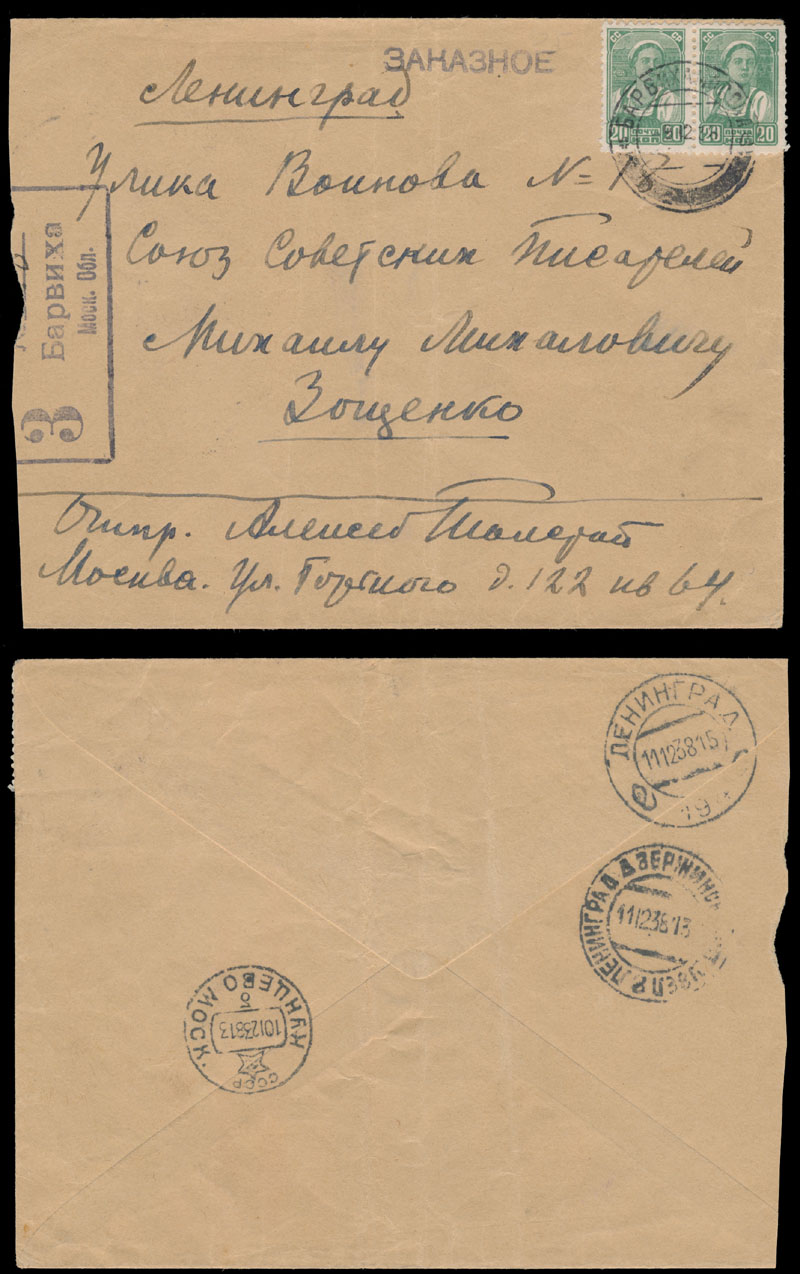 ЗАКАЗНОЕ
СС СР СС СР
20 ПОЧТА 20 20 ПОЧТА 20
БАРВИХА МОСК
Ленинград
Улика Воинова N = 1
Союз Советских Писарелей
Михаилу Михаловичу
Зощенко
3
Барвиха
Моск. Обл.
Отпр. Алексей Толстой
Москва. Ул. Горького д. 122 кв 64.
ЛЕНИНГРАД
11123815
19
ЛЕНИНГРАД ДЗЕРЖИНСК
11123813
КУНЦЕВО МОСК.
10123813
СССР